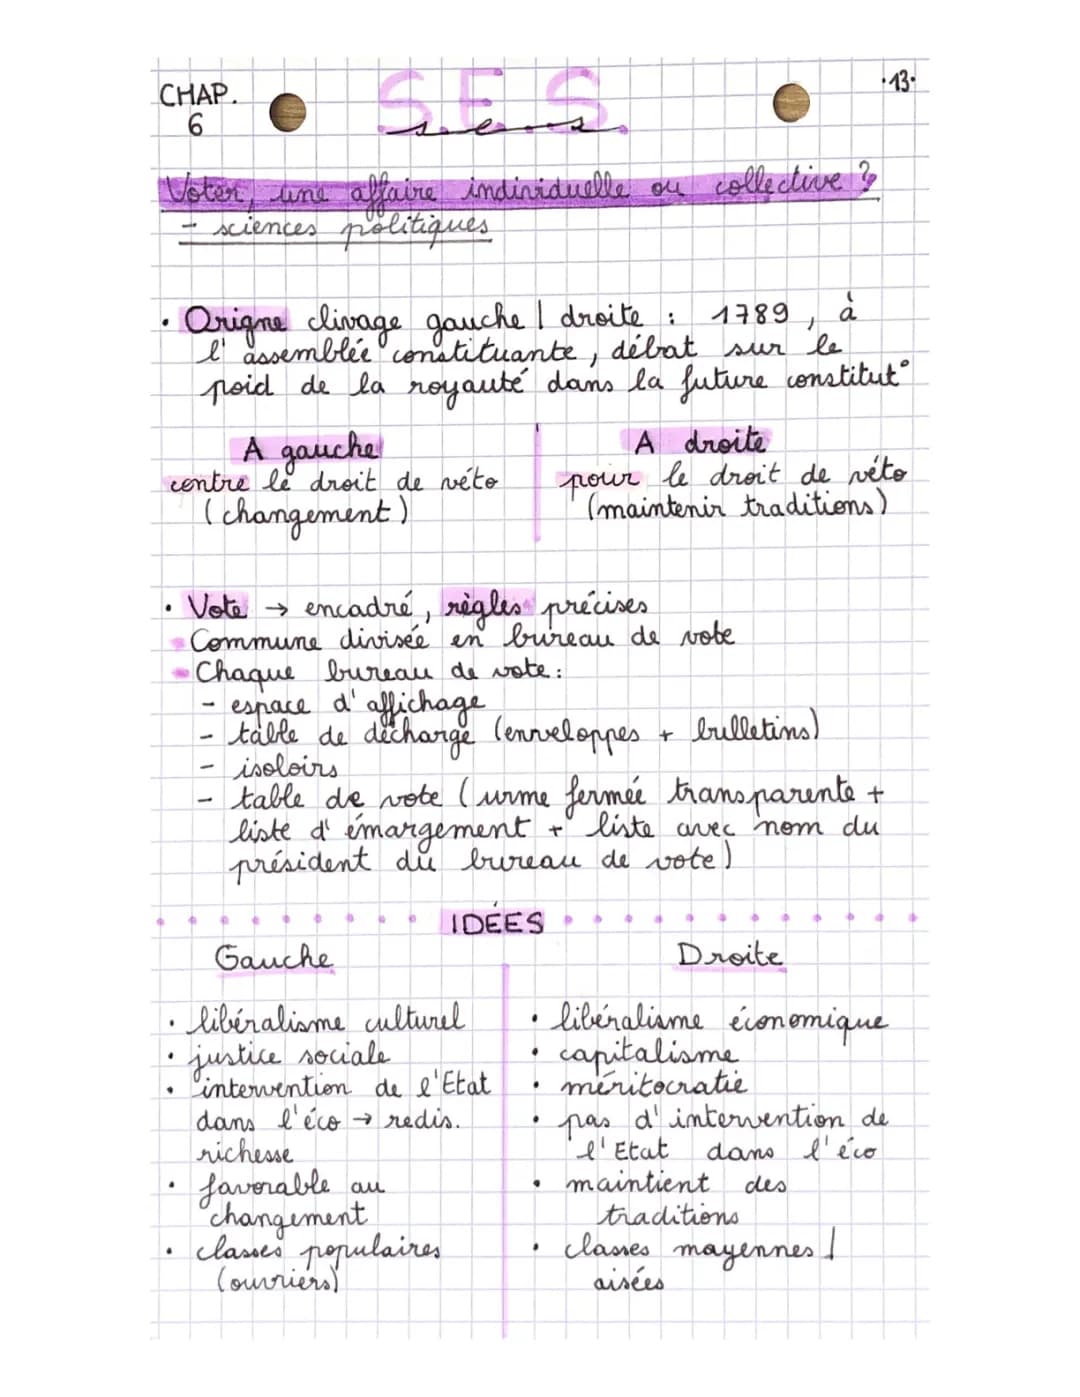 CHAP. 6
S.E.S.
s.e.s.
·13·
Voter, une affaire individuelle ou collective ?
- sciences politiques
• Origne clivage gauche / droite : 1789, à
l'assemblée constituante, débat sur le
poid de la royauté dans la future constitut°
A gauche
contre le droit de véto
(changement)
A droite
pour le droit de véto
(maintenir traditions)
• Vote → encadré, règles précises
- Commune divisée en bureau de vote
- Chaque bureau de vote :
- espace d'affichage
- table de décharge (enveloppes + bulletins)
- isoloirs
- table de vote (urne fermée transparente +
liste d'émargement + liste avec nom du
président du bureau de vote)
IDÉES
Gauche
• libéralisme culturel
• justice sociale
• intervention de l'Etat
dans l'éco → redis.
richesse
• favorable au
changement
• classes populaires
(ouvriers)
Droite
• libéralisme économique
• capitalisme
• méritocratie
• pas d'intervention de
l'Etat dans l'éco
• maintient des
traditions
• classes mayennes /
aisées